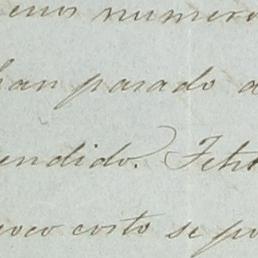 enos numero
han pasado a
endido. Feliz
poco costo se po